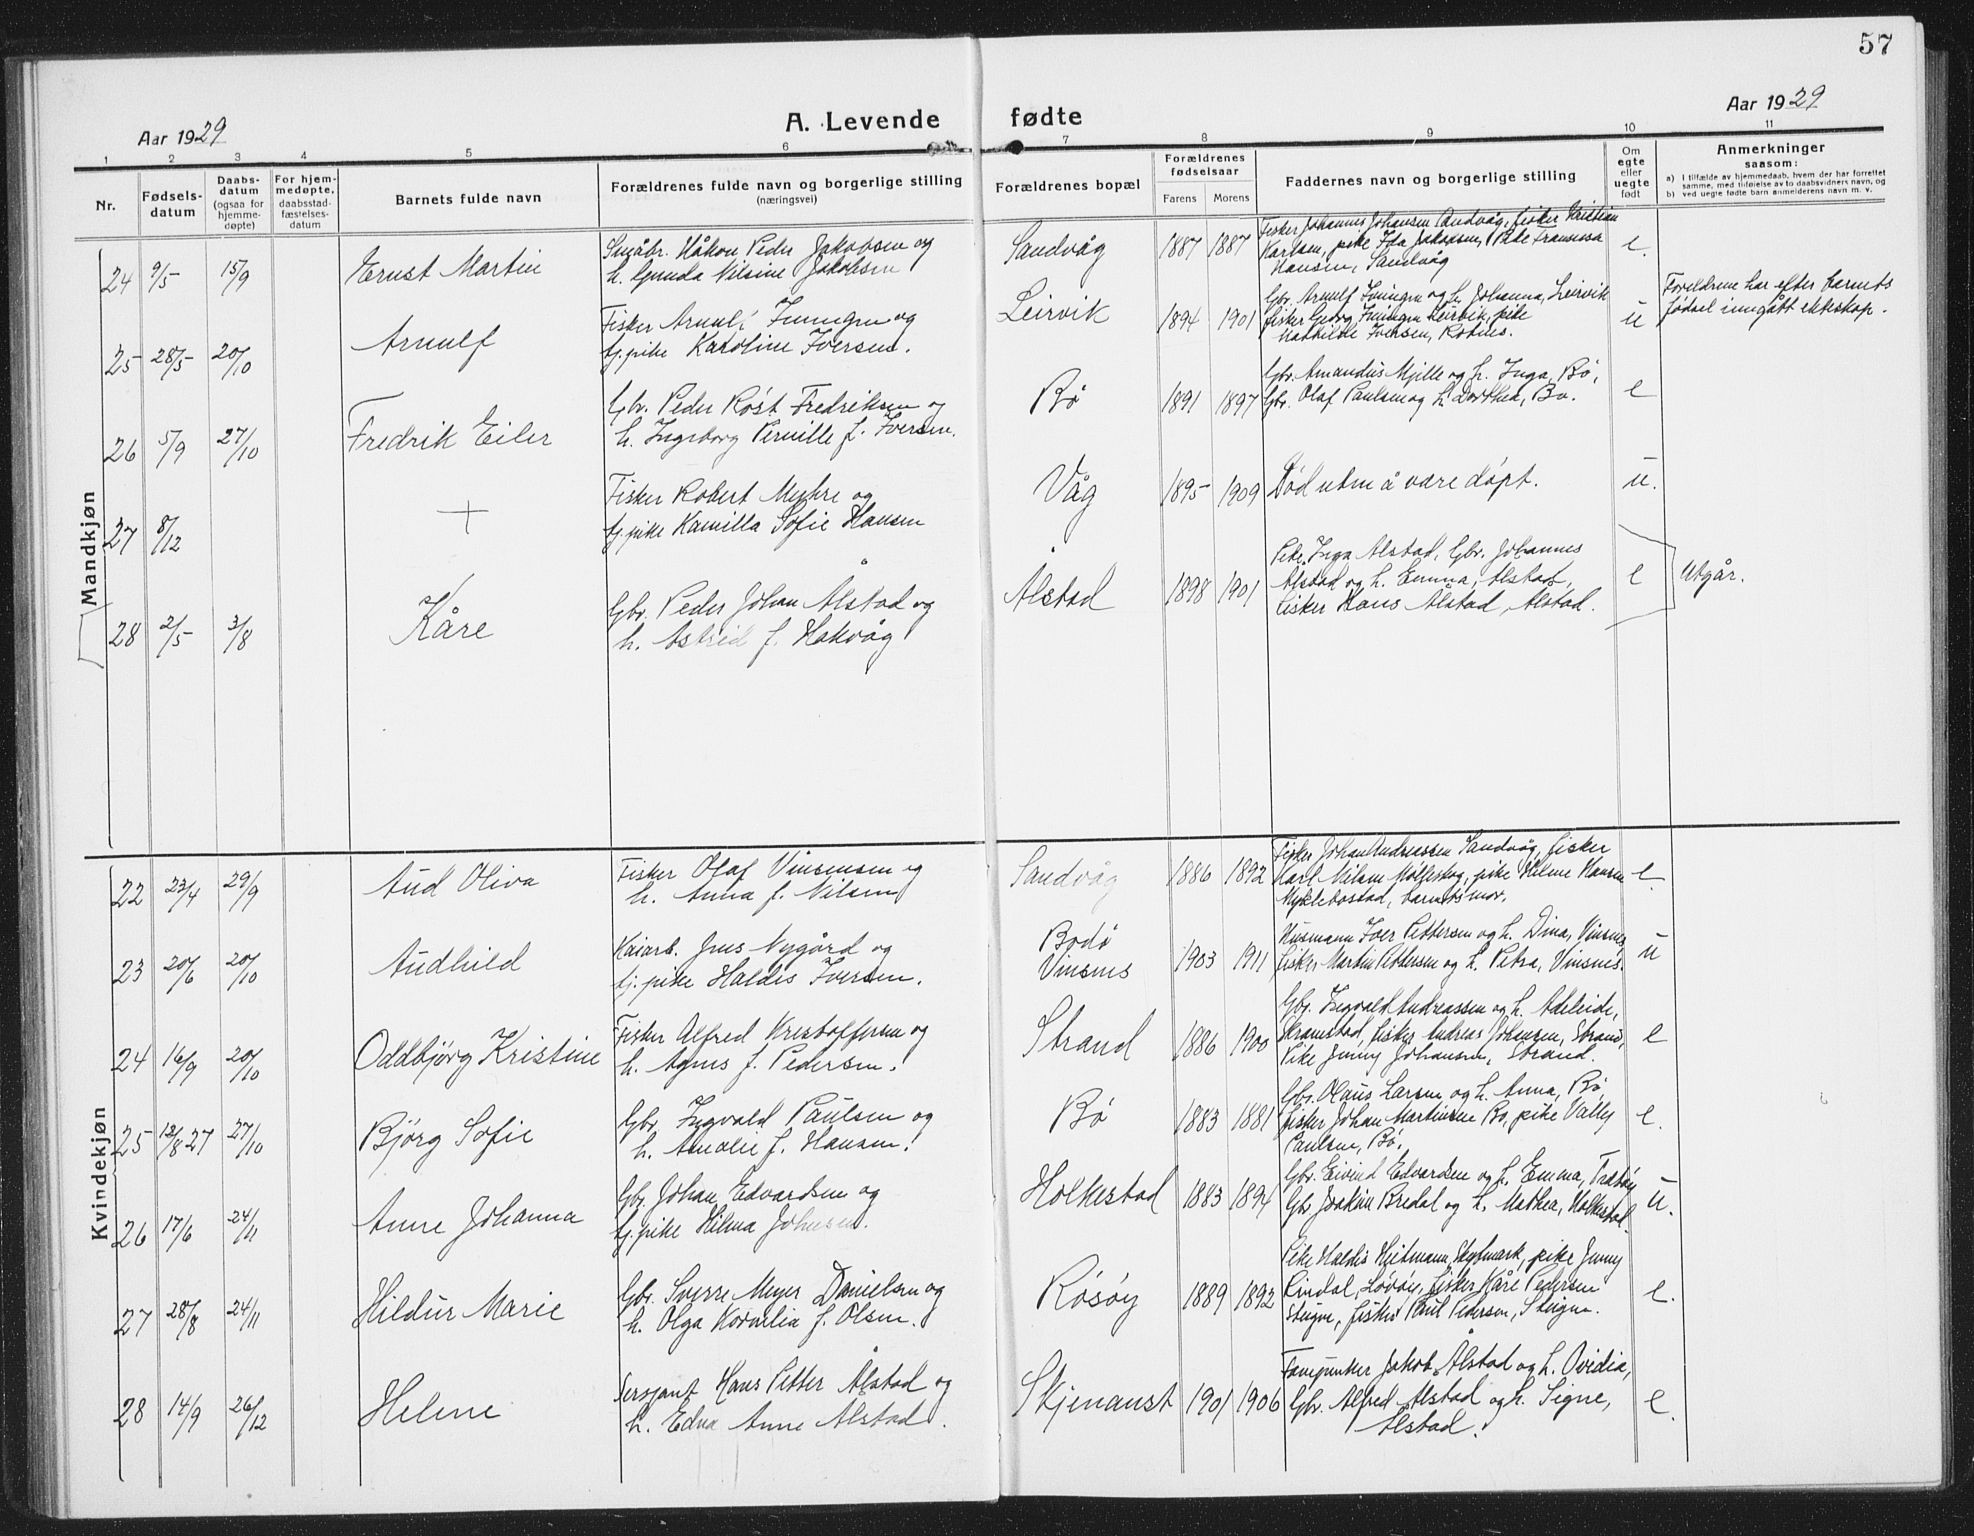 57
Aar 1929
A. Levende fødte
Aar 1929
1 2 3 4 5 6 7 8 9 10 11
Nr.
Fødsels-
datum
Daabs-
datum
(ogsaa for
hjemme-
døpte)
For hjem-
medøpte,
daabsstad-
fæstelses-
datum
Barnets fulde navn
Forældrenes fulde navn og borgerlige stilling
(næringsvei)
Forældrenes bopæl
Forældrenes
fødselsaar
Farens Morens
Faddernes navn og borgerlige stilling
Om
egte
eller
uegte
født
Anmerkninger
saasom:
a) I tilfælde av hjemmedaab, hvem der har forrettet
samme, med tilføielse av to daabsvidners navn, og
b) ved uegte fødte barn anmelderens navn m. v.
Mandkjøn
24 9/5 15/9 Ernst Martin
Småbr. Håkon Peder Jakobsen og
h. Gunda Nilsine Jakobsen
Sandvåg 1887 1887
Fisker Johannes Johansen Sandvåg, fisker Kristian
Karlsen, pike Ida Jakobsen, Pike Fransesca
Hansen, Sandvåg
e.
25 28/5 20/10 Arnulf
Fisker Arnulf Inningen og
tj.pike Karoline Iversen.
Leirvik 1894 1901
Gbr. Arnulf Inningen og h. Johanna, Leirvik
fisker Georg Inningen Leirvik, pike
Mathilde Iversen,
u
Foreldrene har efter barnets
fødsel inngått ekteskap.
26 5/9 27/10 Fredrik Eiler
Gbr. Peder Røst Fredriksen og
h. Ingeborg Pernille f. Iversen.
Bø 1891 1897
Gbr. Amandus Mjelle og h. Inga, Bø,
Gbr. Olaf Paulsen og h. Dorthea, Bø.
e
27 8/12 +
Fisker Robert Myhre og
tj.pike Kamilla Sofie Hansen
Våg 1895 1909 Død uten å være døpt. u.
28 2/5 3/8 Kåre
Gbr. Peder Johan Ålstad og
h. Astrid f. Hakvåg
Ålstad 1898 1901
Pike Inga Alstad, Gbr. Johannes
Alstad og h. Emma, Alstad,
fisker Hans Alstad, Alstad.
e Utgår.
Kvindekjøn
22 23/4 29/9 Aud Oliva
Fisker Olaf Vinsensen og
h. Anna f. Nilsen
Sandvåg 1886 1892
Fisker Johan Andreassen Sandvåg, fisker
Karl Nilsen pike Hilme Hansen
Myklebostad, barnets mor.
e
23 20/6 20/10 Audhild
Kaiarb. Jens Nygård og
tj. pike Haldis Iversen.
Bodø
Vinsnes 1903 1911
Husmann Iver Pettersen og h. Dina, Vinsnes
fisker Martin Pettersen og h. Petra, Vinsnes.
u
24 16/9 20/10 Oddbjörg Kristine
Fisker Alfred Kristoffersen og
h. Agnes f. Pedersen.
Strand 1886 1900
Gbr. Ingvald Andreassen og h. Adeleide,
fisker Andreas Johansen, Strand,
Pike Jenny Johansen, Strand.
e
25 12/8 27 27/10 Björg Sofie
Gbr. Ingvald Paulsen og
h. Amalie f. Hansen.
Bø 1883 1881
Gbr. Olaus Larsen og h. Anna, Bø,
fisker Johan Martinsen Bø, pike Vally
Paulsen, Bø.
e.
26 17/6 24/11 Anne Johanna
Gbr. Johan Edvardsen og
tj. pike Hilma Johnsen.
Holkestad 1883 1894
Gbr. Eivind Edvardsen og h. Emma,
Gbr Joakim Bredal og h. Mathea, Holkestad.
u.
27 28/8 24/11 Hildur Marie
Gbr. Sverre Meyer Danielsen og
h. Olga Kornelia f. Olsen.
Røsøy 1889 1892
Pike Haldis Heitmann, pike Jenny
Lindal, Løvøy, fisker Kåre Pedersen
Steigen, fisker Paul Pedersen, Steigen.
e.
28 14/9 26/12 Helene
Sersjant Hans Petter Alstad og
h. Edna Anne Alstad.
Skjenanst 1901 1906
Fanejunker Jakob Ålstad og h. Ovidia,
Gbr. Alfred Alstad og h. Signe,
Alstad.
e.